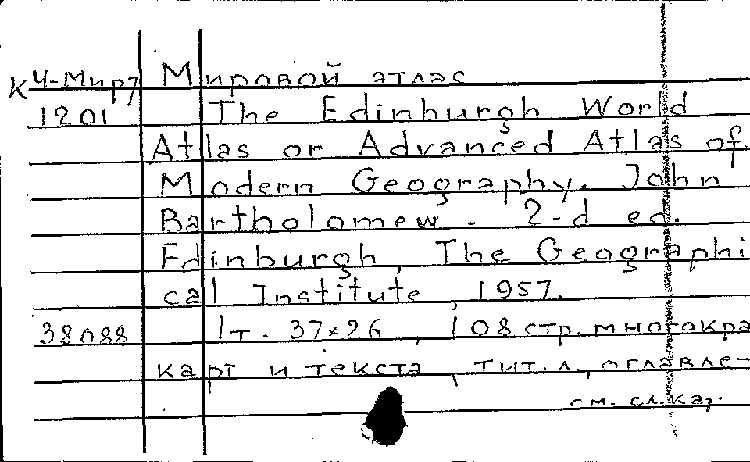 К Ч-Мир7 Мировой атлас
1201 The Edinburgh World
Atlas or Advanced Atlas of
Modern Geography. John
Bartholomew. - 2-d ed.
Edinburgh, The Geographi
cal Institute, 1957.
38088 1т. 37×26, 108 стр. многокра
карт и текста, тит. л., оглавле-
см. сл. кар.